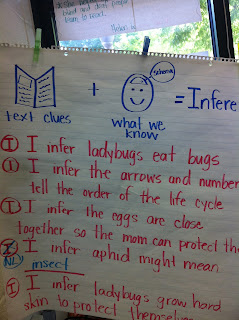 blind and deaf people
learn to read.
schema
+ = Infere
text clues what we
know
I I infer ladybugs eat bugs
I I infer the arrows and number
tell the order of the life cycle
I I infer the eggs are close
together so the mom can protect the
I I infer aphid might mean
NL insect
I I infer ladybugs grow hard
skin to protect themselves